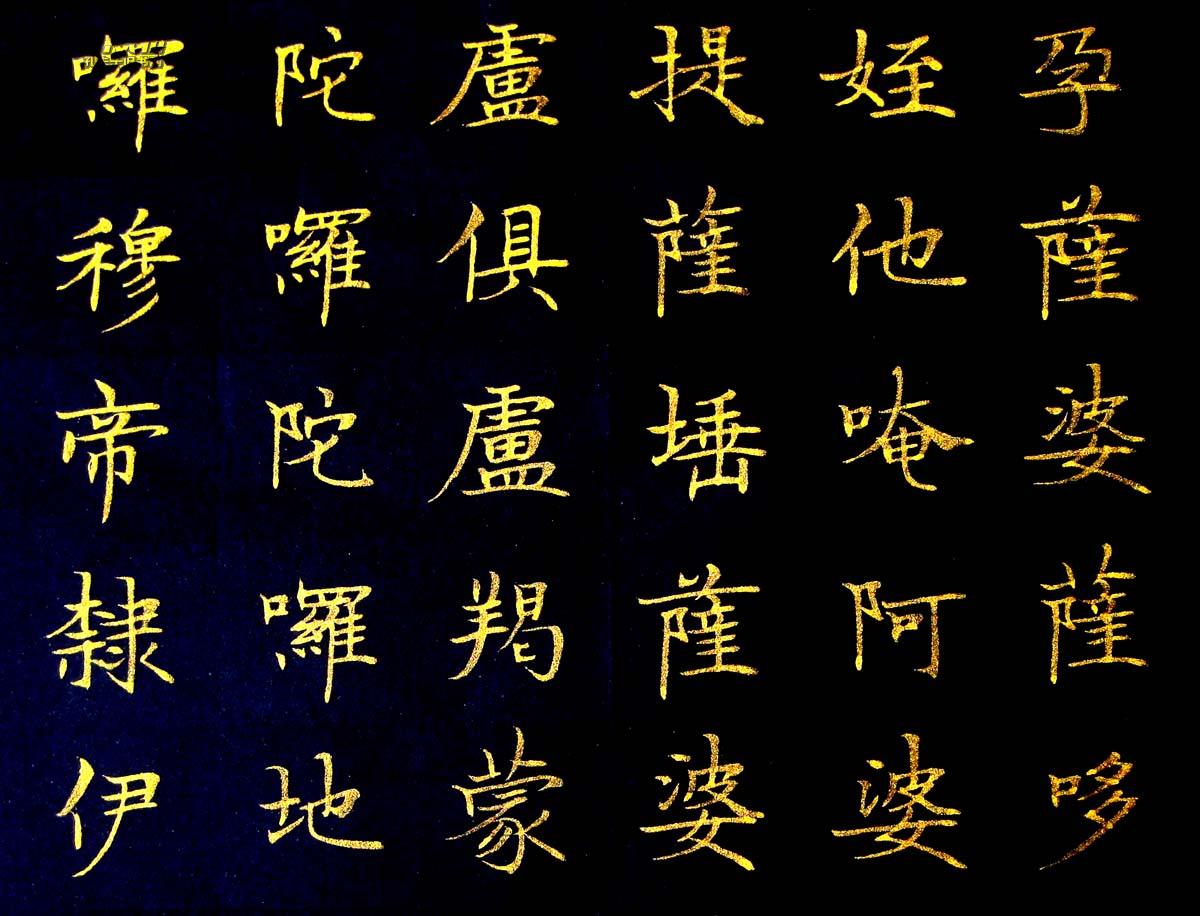 孕薩婆薩哆
姪他唵阿婆
提薩埵薩婆
盧俱盧羯蒙
陀囉陀囉地
囉穆帝隸伊